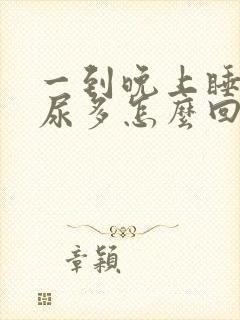 一到晚上睡
尿多怎麼回
章穎